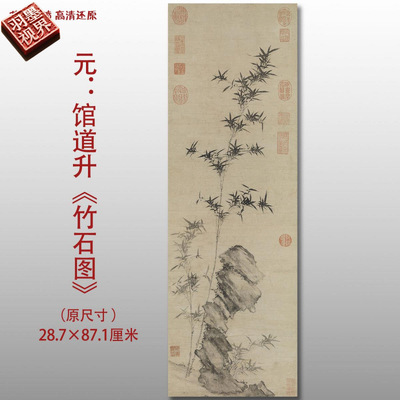 羽墨
视界
高清还原
元：馆道升《竹石图》
（原尺寸）
28.7×87.1厘米